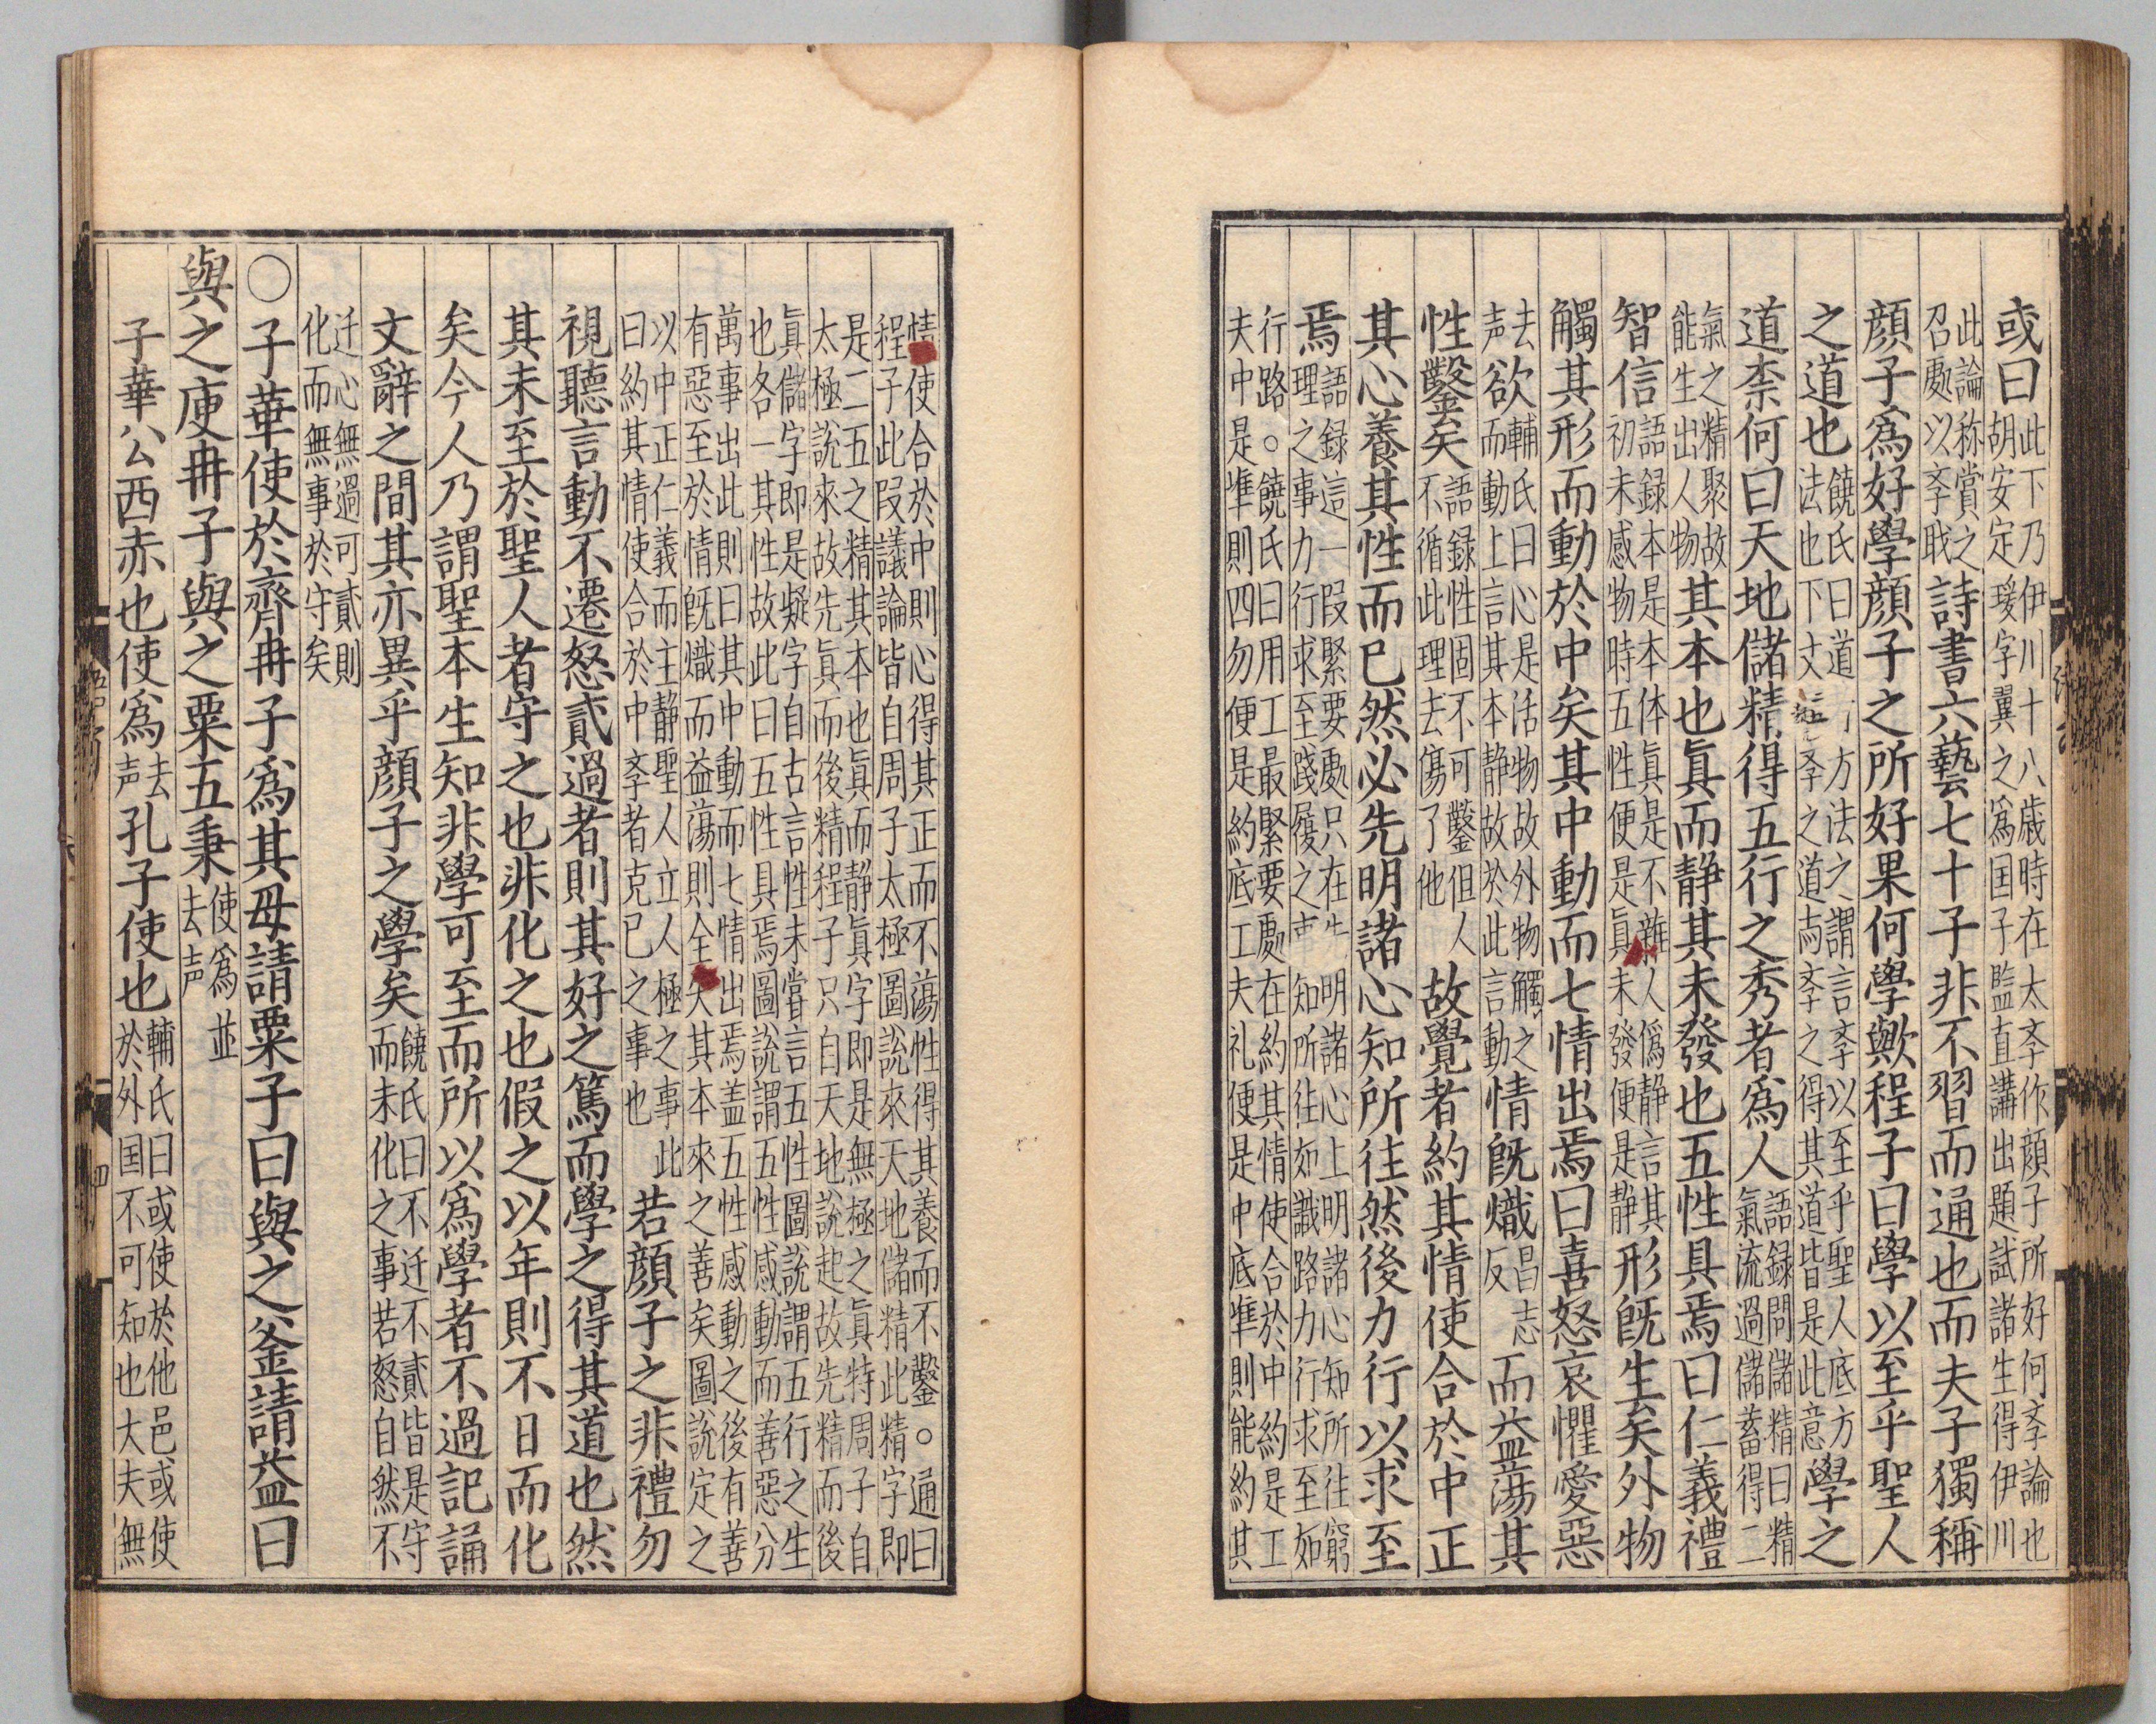 或曰此下乃伊川十八歳時在太斈作顔子所好何斈論也
胡安定瑗字翼之爲国子監直講出題試諸生得伊川
此論称賞之
召處以斈戢詩書六藝七十子非不習而通也而夫子獨稱
顔子爲好學顔子之所好果何學歟程子曰學以至乎聖人
之道也饒氏曰道方法之謂言斈以至乎聖人底方
法也下丈斈之道為斈之得其道皆是此意學之
道柰何曰天地儲精得五行之秀者爲人語録問儲精曰精
氣流過儲蓄得二
氣之精聚故
能生出人物其本也眞而静其未發也五性具焉曰仁義禮
智信語録本是本体眞是不雜人僞静言其
初未感物時五性便是眞未發便是静形旣生矣外物
觸其形而動於中矣其中動而七情出焉曰喜怒哀懼愛惡
去声欲輔氏曰心是活物故外物觸之
而動上言其本静故於此言動情旣熾昌志反而益蕩其
性鑿矣語録性固不可鑿但人
不循此理去傷了他故覺者約其情使合於中正
其心養其性而已然必先明諸心知所往然後力行以求至
焉語録這一叚緊要處只在先明諸心上明諸心知所往窮
理之事力行求至踐履之事知所往如識路力行求至如
行路。饒氏曰用工最緊要處在約其情使合於中約是工
夫中是凖則四勿便是約底工夫礼便是中底凖則能約其
情使合於中則心得其正而不蕩性得其養而不鑿。通曰
程子此叚議論皆自周子太極圖說來天地儲精此精字即
是二五之精其本也眞而静眞字即是無極之眞特周子自
太極說來故先眞而後精程子只自天地說起故先精而後
眞儲字即是凝字自古言性未甞言五性圖說謂五行之生
也各一其性故此曰五性具焉圖說謂五性感動而善惡分
萬事出此則曰其中動而七情出焉盖五性感動之後有善
有惡至於情旣熾而益蕩則全失其本來之善矣圖說定之
以中正仁義而主静聖人立人極之事此
曰約其情使合於中斈者克已之事也若顔子之非禮勿
視聽言動不遷怒貳過者則其好之篤而學之得其道也然
其未至於聖人者守之也非化之也假之以年則不日而化
矣今人乃謂聖本生知非學可至而所以爲學者不過記誦
文辭之間其亦異乎顔子之學矣饒氏曰不迁不貳皆是守
而未化之事若怒自然不
迁心無過可貳則
化而無事於守矣
○子華使於齊冉子爲其母請粟子曰與之釜請益曰
與之庾冉子與之粟五秉使爲並
去声
子華公西赤也使爲去声孔子使也輔氏曰或使於他邑或使
於外国不可知也大夫無